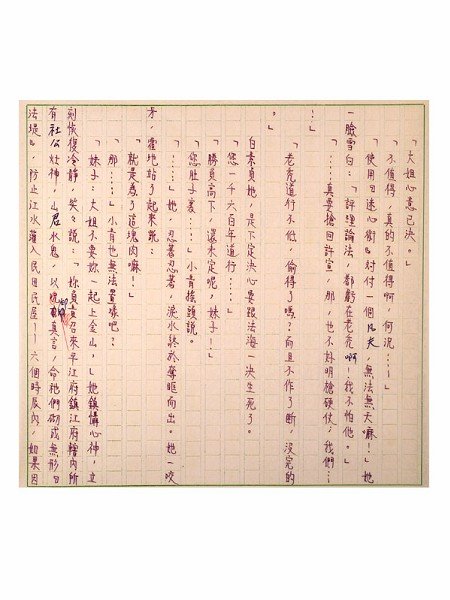 「大姐心意已決。」
「不值得,真的不值得啊,何況⋯⋯」
「使用『迷心術』対付一個凡夫,無法無天嘛!」她
一臉雪白:「評理論法,都虧在老虎啊!我不怕他。」
「⋯⋯真要搶回許宣,那,也不好明槍硬仗;我們⋯
⋯」
「老虎道行不低,偷得了嗎?而且不作了斷,沒完的
。」
白素貞她,是下定決心要跟法海一決生死了。
「您一千六百年道行⋯⋯」
「勝負高下,還未定呢,妹子!」
「您肚子裏⋯⋯」小青接頭說。
「⋯⋯」她,忍著忍著,淚水終於奪眶而出。她一咬
牙,霍地站了起來說:
「就是為了這塊肉嘛!」
「那⋯⋯」小青也無法置喙吧?
「妹子:大姐不要妳一起上金山,」她鎮懾心神,立
刻恢復冷靜,笑々說:「妳負責召來平江府鎮江府轄內所
有社公灶神,山君水鬼,以 真言,命牠們砌成無形『
法堤』,防止江水灌入民田民屋——六個時辰內,如果因